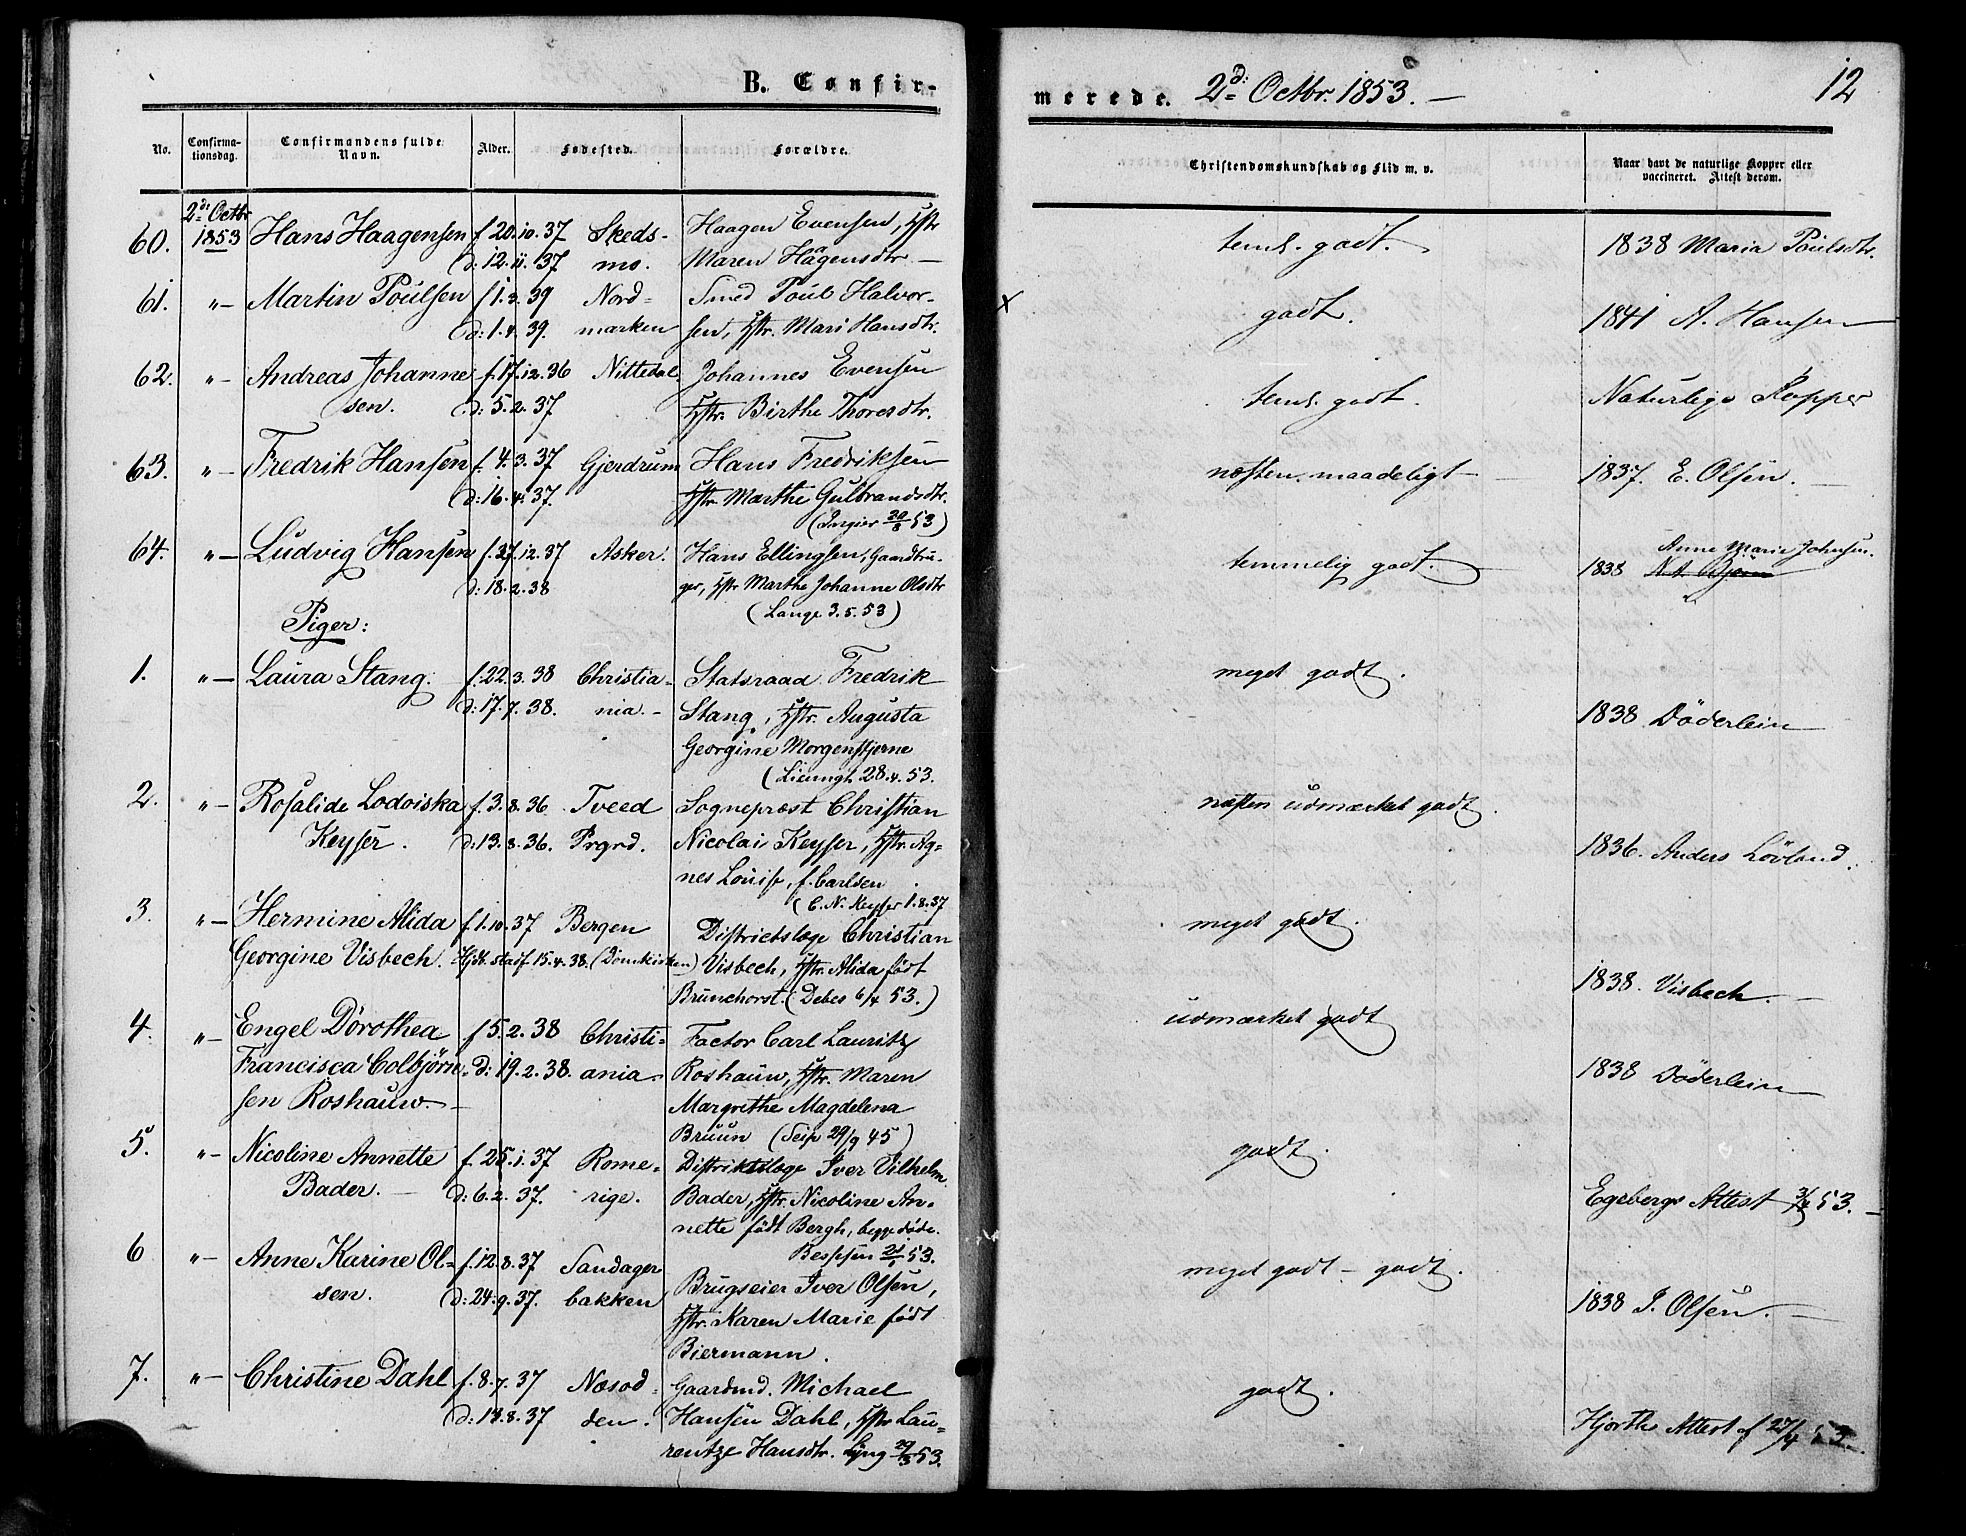 B. Confir-
merede. 2d: Octbr. 1853. —
12
No.
Confirma-
tionsdag.
Confirmandens fulde
Navn.
Alder.
Fødested.
Forældre.
Christendomskundskab og Flid m. v.
Naar havt de naturlige Kopper eller
vaccineret. Attest derom.
2d: Octbr
60. 1853 Hans Haagensen f. 20.10.37 Skeds- Haagen Evensen, Hstr
d: 12.11.37 mo. Maren Hågensdtr —
teml. godt. 1838 Maria Poulsdtr.
61. "— Martin Poülsen f 1.3.39 Nord- Smed Poül Halvor-
d: 1.4.39. marken sen, Hstr. Mari Hansdtr.
x godt. 1841 A. Hansen
62. "— Andreas Johanne f. 17.12.36 Nittedal. Johannes Evensen
sen. d: 5.2.37 Hstr. Birthe Thoresdtr.
teml. godt. Naturlige Kopper
63. "— Fredrik Hansen f. 4.3.37 Gjerdrum Hans Fredriksen
d: 16.4.37. Hstr. Marthe Gulbrandsdtr.
(Ingier 20/8 53)
næsten maadeligt — 1837. E. Olsen. —
64. "— Ludvig Hansen f. 27.12.37 Asker. Hans Ellingsen, Gaardbru-
d: 18.2.38 ger, Hstr Marthe Johanne Olsdtr
(Lange 3.5.53)
temmelig godt. Anne Marie Johnsen.
1838 N.A. Bjørn
Piger:
1. "— Laura Stang. f. 22.3.38 Christia- Statsraad Fredrik
d: 17.7.38. nia. — Stang, Hstr. Augusta
Georgine Morgenstjerne
(Lieungh 28.4.53.
meget godt.
1838 Döderlein
2. "— Rosalide Lodoiska f. 3.8.36 Tveed Sognepræst Christian
Keyser. d: 13.8.36. Prgrd. Nicolai Keyser, Hstr. Ag-
nes Louise, f. Carlsen
(C. N. Keyser 1.8.37
næsten udmærket godt.
1836. Anders Lövland.
3. "— Hermine Alida f. 1.10.37 Bergen Districtslæge Christian
Georgine Visbech. 15.4.38. (Domkirken) Visbech, Hstr. Alida født
Brunchorst. (Debes 6/4 53.)
meget godt.
1838. Visbech. —
4. "— Engel Dorothea f 5.2.38 Christi- Factor Carl Lauritz
Francisca Colbjørn- d: 19.2.38. ania. Roshauw, Hstr. Maren
sen Roshauw. — Margrethe Magdelena
Bruun (Seip 29/9 45)
udmærket godt
1838 Döderlein
5. "— Nicoline Annette f. 25.1.37 Rome- Distriktslæge Iver Vilhelm
Bader. — d: 6.2.37. rige. Bader, Hstr. Nicoline An-
nette født Bergh, begge døde.
Bessesen 53.
godt.
Egebergs Attest 53. —
6 "— Anne Karine Ol- f. 12.8.37 Sandager Brugseier Iver Olsen,
sen. d: 24.9.37. bakken Hstr. Karen Marie født
Biermann.
meget godt — godt.
1838 I. Olsen. —
7. "— Christine Dahl f. 8.7.37 Næsod- Gaardmd. Michael
d: 13.8.37 den. Hansen Dahl, Hstr Lau-
rentze Hansdtr. Lyng 29/3 53.
godt.
Hjorths Attest af 27/4 53.